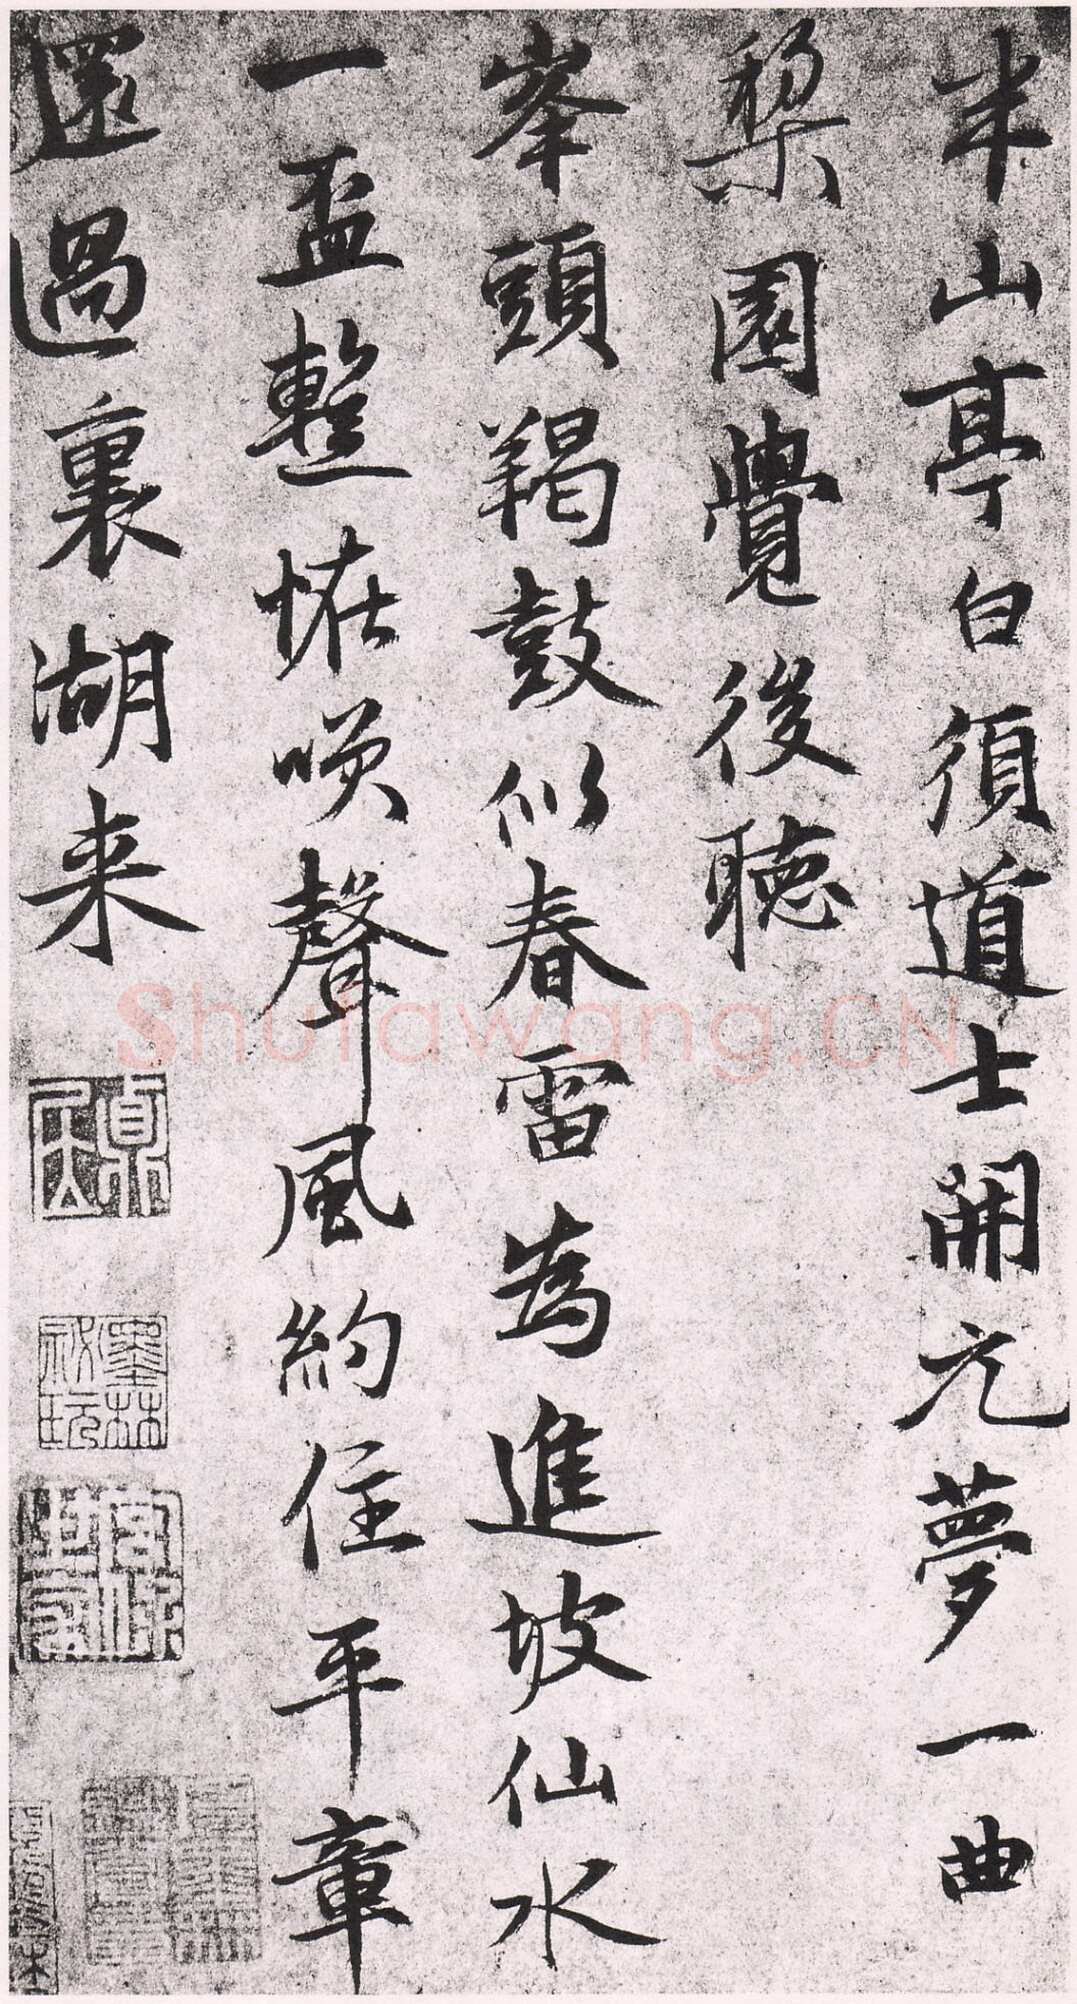 半山亭白須道士開元夢一曲
梨園覺後聽
峯頭羯鼓似春雷為進坡仙水
一盃整恠喚聲風約住平章
還過裏湖来
墨林
秘玩
Shufawang.CN